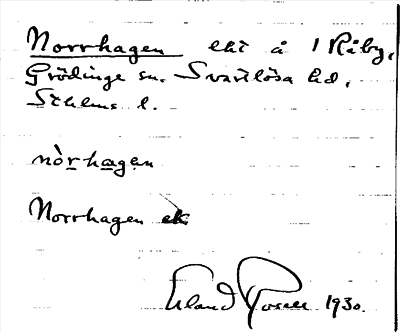 Norrhagen ekt å 1 Råby,
Grödinge sn. Svartlösa hd,
Sthlms l.
nòrhagen
Norrhagen ek
Erland Rosell 1930.